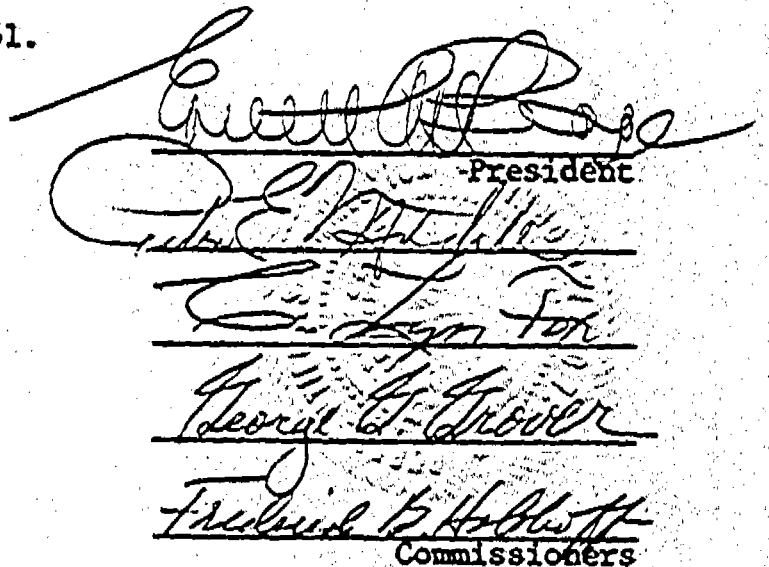 61.
President
C. Lyn Fox
George G. Grover
Frederick B. Holoboff
Commissioners